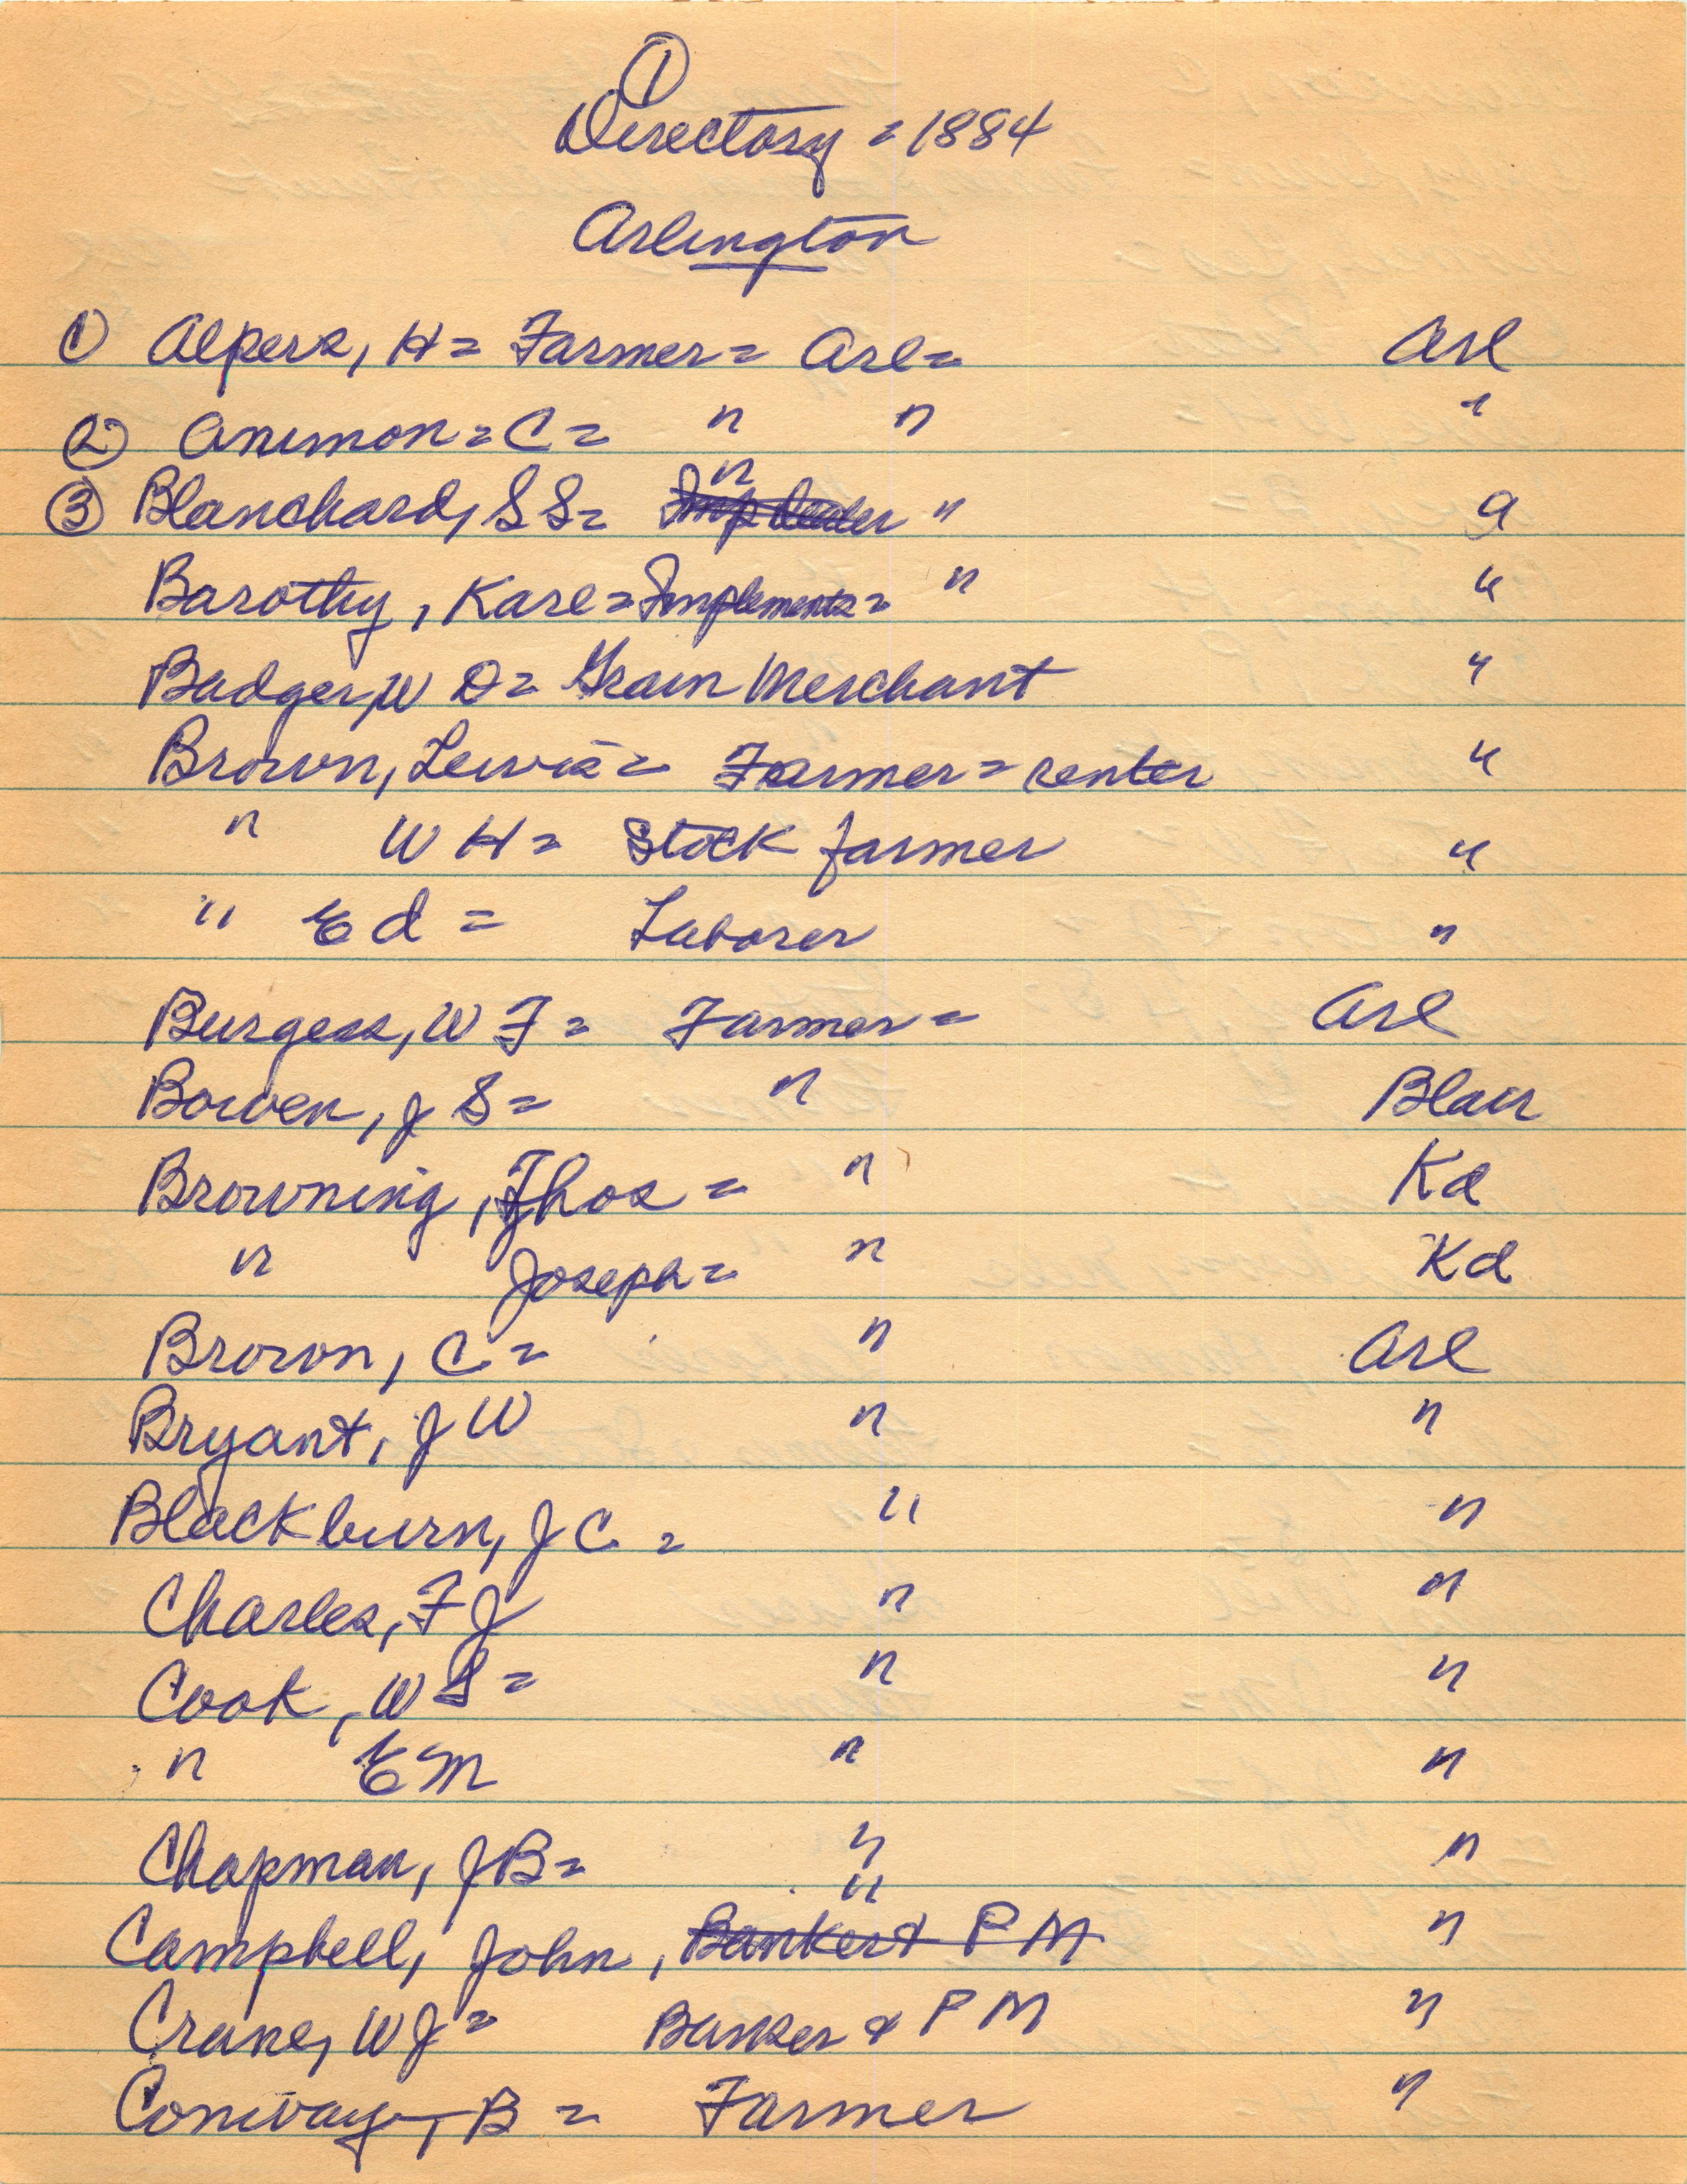 ①
Directory = 1884
Arlington
① Alpers, H = Farmer = Arl = Arl
② Animon = C = " " "
③ Blanchard, S S = " Imp dealer " "
Barothy, Karl = Implements = " "
Badger, W D = Grain Merchant "
Brown, Lewis = Farmer = renter "
" W H = Stock farmer "
" Ed = Laborer "
Burgess, W F = Farmer = Arl
Bowen, J S = " Blair
Browning, Thos = " Kd
" Joseph = " Kd
Brown, C = " Arl
Bryant, J W " "
Blackburn, J C = " "
Charles, F J " "
Cook, W S = " "
" E M " "
Chapman, J B = " "
Campbell, John, " Banker & P M "
Crane, W J = Banker & P M "
Conway, B = Farmer "